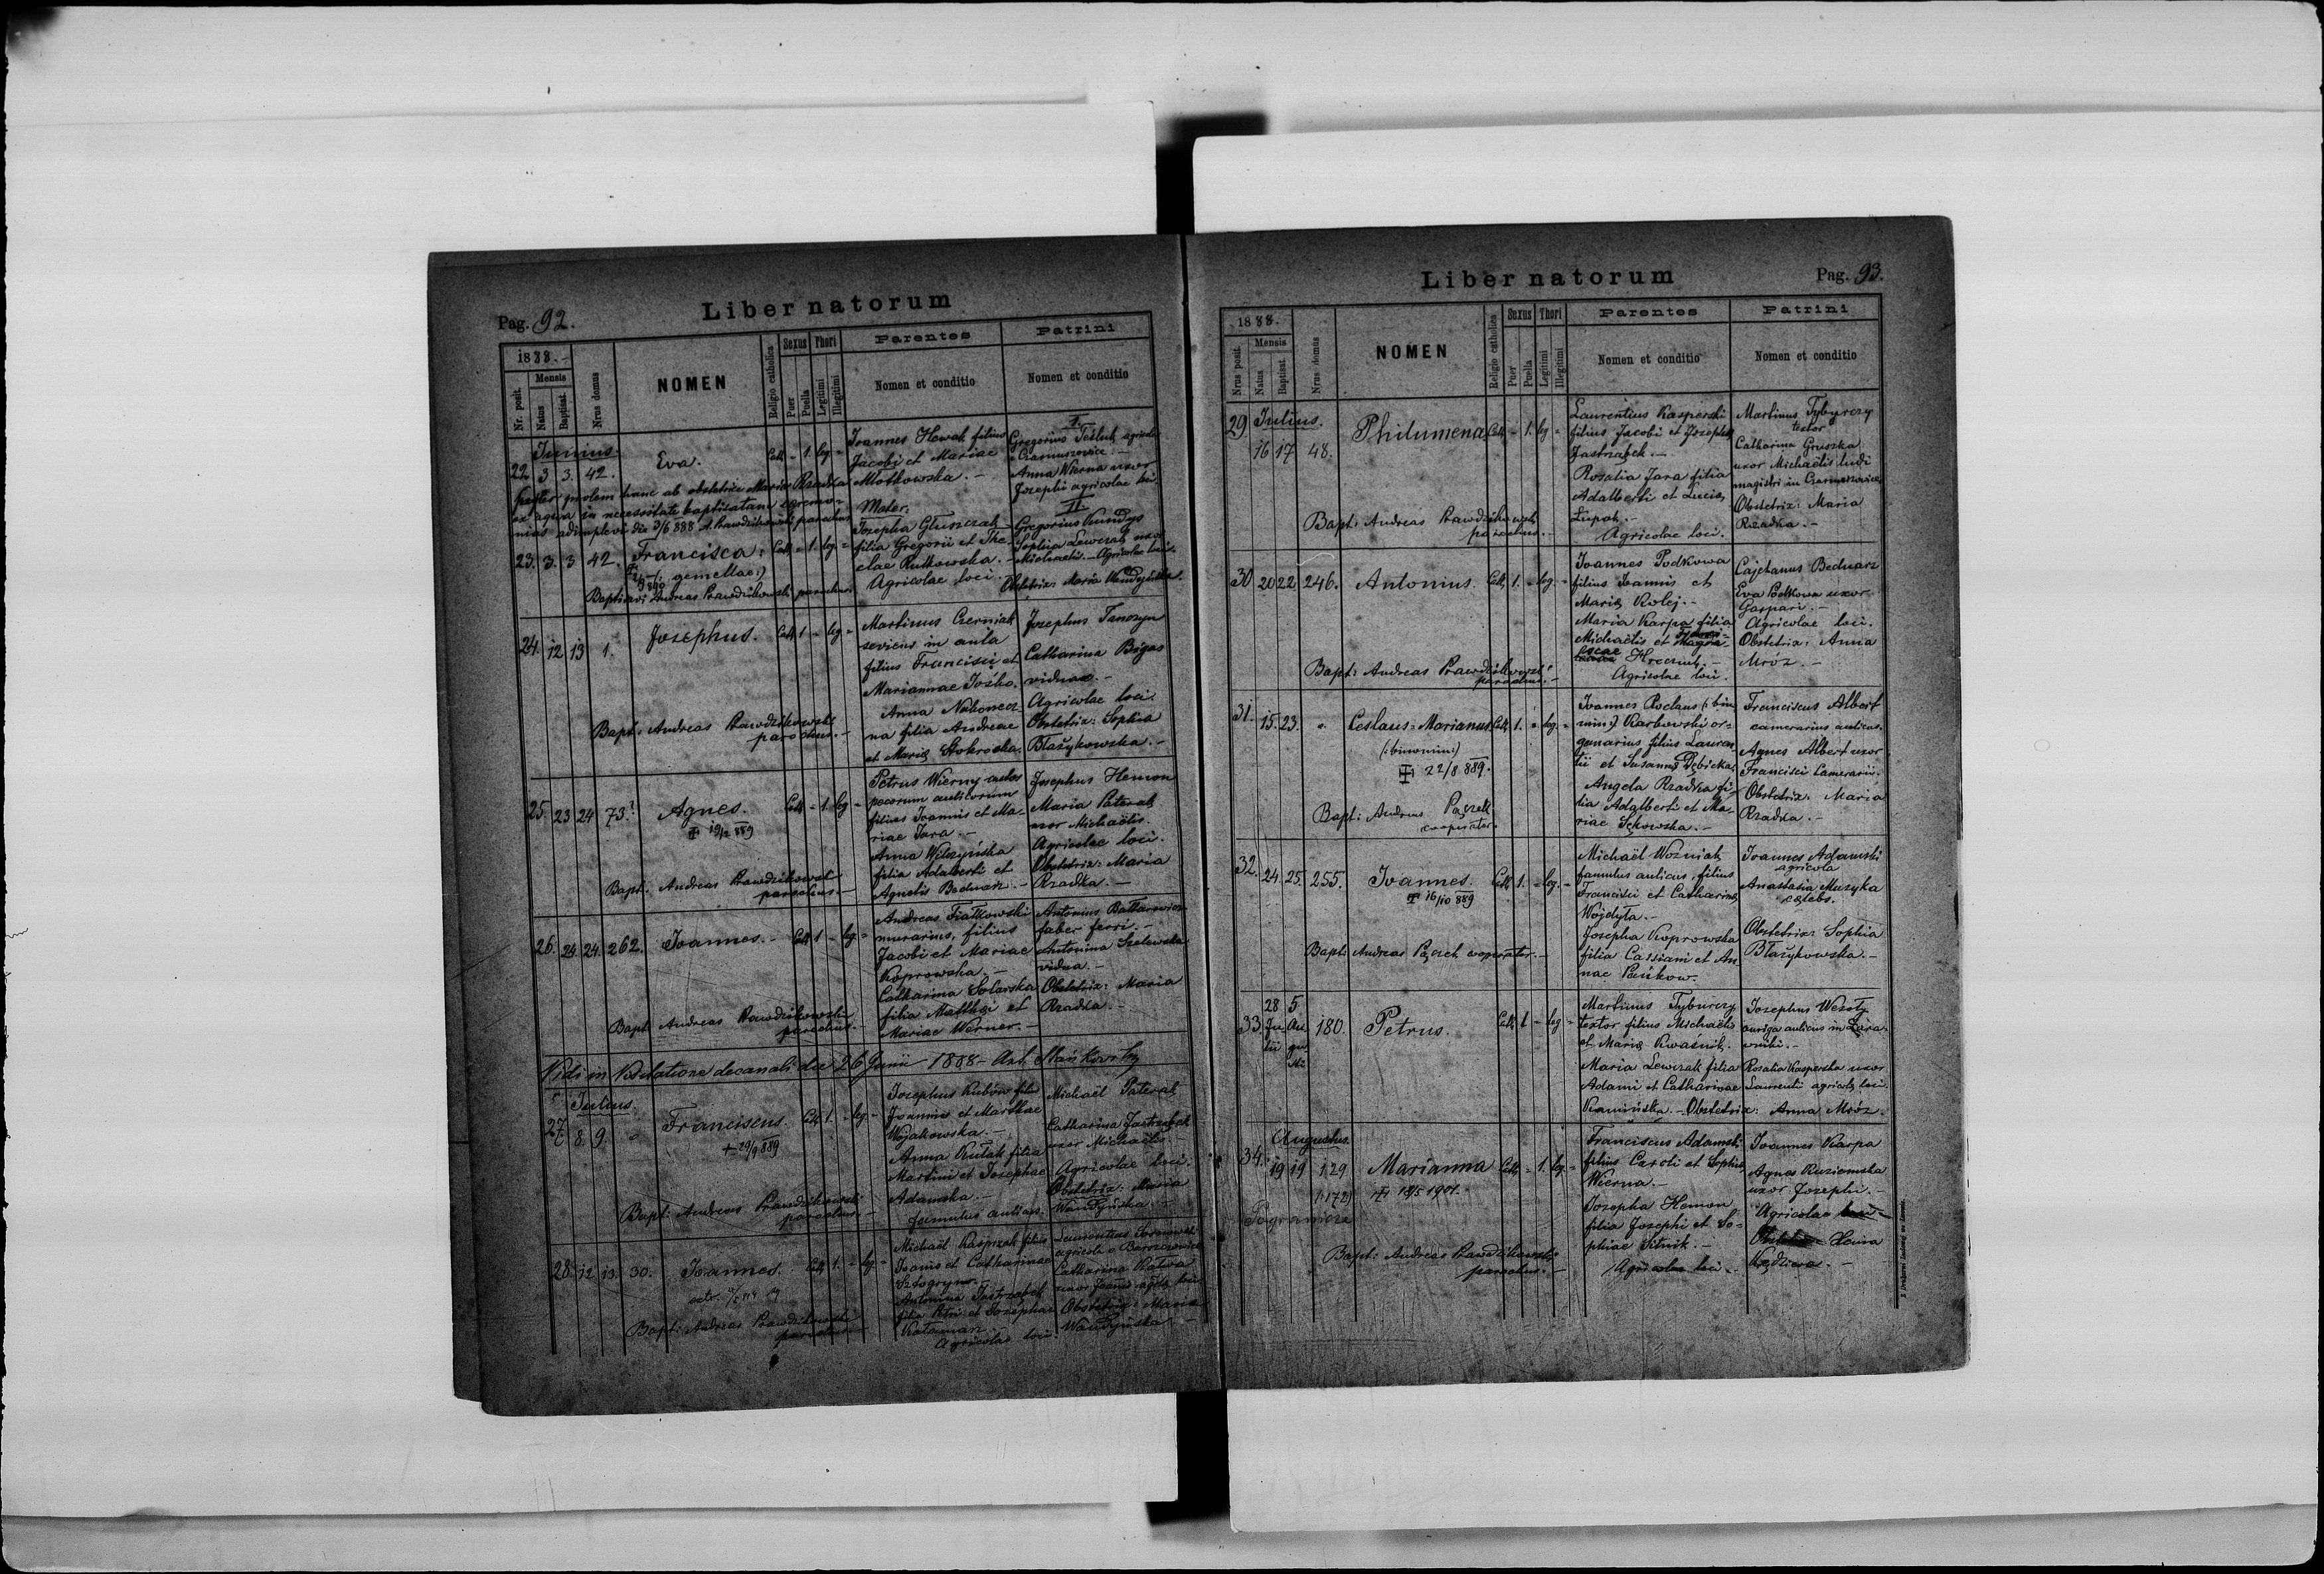 Pag. 92.
Liber natorum
1888.-
Nr. posit.
Mensis
Natus
Baptisat.
Nrus domus
NOMEN
Religio catholica
Sexus
Puer
Puella
Thori
Legitimi
Illegitimi
Parentes
Nomen et conditio
Patrini
Nomen et conditio
Junius.
22. 3 3. 42. Eva. Cath - 1. leg -
Joannes Howak filius
Jacobi et Mariae
Młotkowska. -
Mater.
Josepha Głuszczak
filia Gregorii et The-
clae Rutkowska. -
Agricolae loci.
I
Gregorius Teśluk agricola
Anna Wierna uxor
Josephi agricolae loci.
II
Gregorius Kundys
Sophia Lewczak uxor
Michaelis. - Agricolae loci.
Obstetrix: Maria Wandyńska.
prolem hanc ab obstetrice Maria Rzadka
ex aqua in necessitate baptisatam
adimplevi die 3/6 888 A. Prawdzikowski parochus
23. 3. 3 42. Francisca. Cath - 1. leg -
(: gemellae:)
Baptisavi Andreas Prawdzikowski parochus.
24. 12 13 1. Josephus. Cath 1 - leg -
Martinus Czerniak
serviens in aula
filius Francisci et
Mariannae Jośko.
Anna Nakonecz
na filia Andreae
et Mariae Stokroska.
Josephus Tanczyn
Catharina Bigas
viduae. -
Agricolae loci.
Obstetrix: Sophia
Błażykowska. -
Bapt: Andreas Prawdzikowski
parochus. -
25. 23 24 73. Agnes. Cath - 1. leg -
19/12 889
Petrus Wierny custos
pecorum aulicorum
filius Joannis et Ma-
riae Jara. -
Anna Wilczyńska
filia Adalberti et
Agnetis Bednarz. -
Josephus Hemon
Maria Paterak
uxor Michaëlis.
Agricolae loci.
Obstetrix: Maria
Rzadka. -
Bapt: Andreas Prawdzikowski
parochus. -
26. 24. 24. 262. Joannes. - Cath 1 - leg -
Andreas Fiałkowski
murarius, filius
Jacobi et Mariae
Koprowska. -
Catharina Solarska
filia Matthaei et
Mariae Werner. -
Antonius Bałłarowicz
faber ferri. -
Antonina Szelewska
vidua. -
Obstetrix: Maria
Rzadka. -
Bapt: Andreas Prawdzikowski
parochus. -
Vidi in Visitatione decanali die 26 Junii 1888 - Ant. Stańkowski
Julius.
27. 8. 9. Franciscus. Cath 1. - leg -
+ 29/9 889
Josephus Kubów filius
Joannis et Marthae
Wojakowska. -
Anna Kułak filia
Martini et Josephae
Adamska. -
famulus aulicus.
Michaël Paterak
Catharina Jastrzębak
uxor Michaëlis -
Agricolae loci.
Obstetrix: Maria
Wandyńska. -
Bapt: Andreas Prawdzikowski
parochus. -
28. 12 13. 30. Joannes. Cath 1. - leg -
Michaël Kasprzak filius
Joannis et Catharinae
Sztogryn.
Antonina Jastrzębak
filia Petri et Josephae
Kataman. -
Agricolae loci.
Laurentius
agricola
Catharina Kałwa
uxor
Obstetrix: Maria
Wandyńska -
Bapt: Andreas Prawdzikowski
parochus. -
Liber natorum
Pag. 93.
1888.
Nrus posit.
Mensis
Natus
Baptisat.
Nrus domus
NOMEN
Religio catholica
Sexus
Puer
Puella
Thori
Legitimi
Illegitimi
Parentes
Nomen et conditio
Patrini
Nomen et conditio
29 Julius.
16 17 48. Philumena Cath - 1. leg -
Laurentius Kasperski
filius Jacobi et Josephae
Jastrzębek. -
Rosalia Jara filia
Adalberti et Luciae
Łupak. -
Agricolae loci.
Martinus Tyburczy
textor
Catharina Gruszka
uxor Michaëlis ludi
magistri in
Obstetrix: Maria
Rzadka. -
Bapt: Andreas Prawdzikowski
parochus. -
30 20 22 246. Antonius. Cath 1. - leg. -
Joannes Podkowa
filius Joannis et
Mariae Kolej. -
Maria Karpa filia
Michaëlis et
Hreczuk. -
Agricolae loci.
Cajetanus Bednarz
Eva Podkowa uxor
Gaspari. -
Agricolae loci.
Obstetrix: Anna
Mróz. -
Bapt: Andreas Prawdzikowski
parochus. -
31. 15. 23. - Ceslaus = Marianus Cath 1. - leg. -
(: binomini:)
22/8 889.
Joannes Roclaus (: bino
mini:) Karbowski or-
ganarius filius Lauren
tii et Susannae Dębicka
Angela Rzadka fi-
lia Adalberti et Ma-
riae Sękowska. -
Franciscus Albert
camerarius aulicus.
Agnes Albert uxor
Francisci Camerarii.
Obstetrix: Maria
Rzadka. -
Bapt: Andreas Pączek
cooperator.
32. 24. 25. 255. Joannes. Cath 1. - leg. -
16/10 889
Michaël Woźniak
famulus aulicus, filius
Francisci et Catharinae
Wojdyła. -
Josepha Koprowska
filia Cassiani et An-
nae Pańkow.
Joannes Adamski
agricola
Anastasia Muzyka
caelebs.
Obstetrix: Sophia
Błażykowska. -
Bapt: Andreas Pączek cooperator. -
28 5
33. Ju Au 180. Petrus. Cath 1 - leg -
lii gu
sti
Martinus Tyburczy
textor filius Michaëlis
et Mariae Kwasnik. -
Maria Lewczak filia
Adami et Catharinae
Kamińska. - Obstetrix: Anna Mróz.
Josephus Wesoły
auriga aulicus in
Rosalia Kasperska uxor
Laurentii agricolae loci.
Augustus.
34. 19 19 129 Marianna Cath - 1. leg. -
(:172) 18/5 1901.
Pogranicze
Franciscus Adamski
filius Caroli et Sophiae
Wierna. -
Josepha Hemon
filia Josephi et So-
phiae Sitnik. -
Agricolae loci. -
Joannes Karpa
Agnes Kuziemska
uxor Josephi. -
Agricolae
Kędziera. -
Bapt: Andreas Prawdzikowski
parochus. -